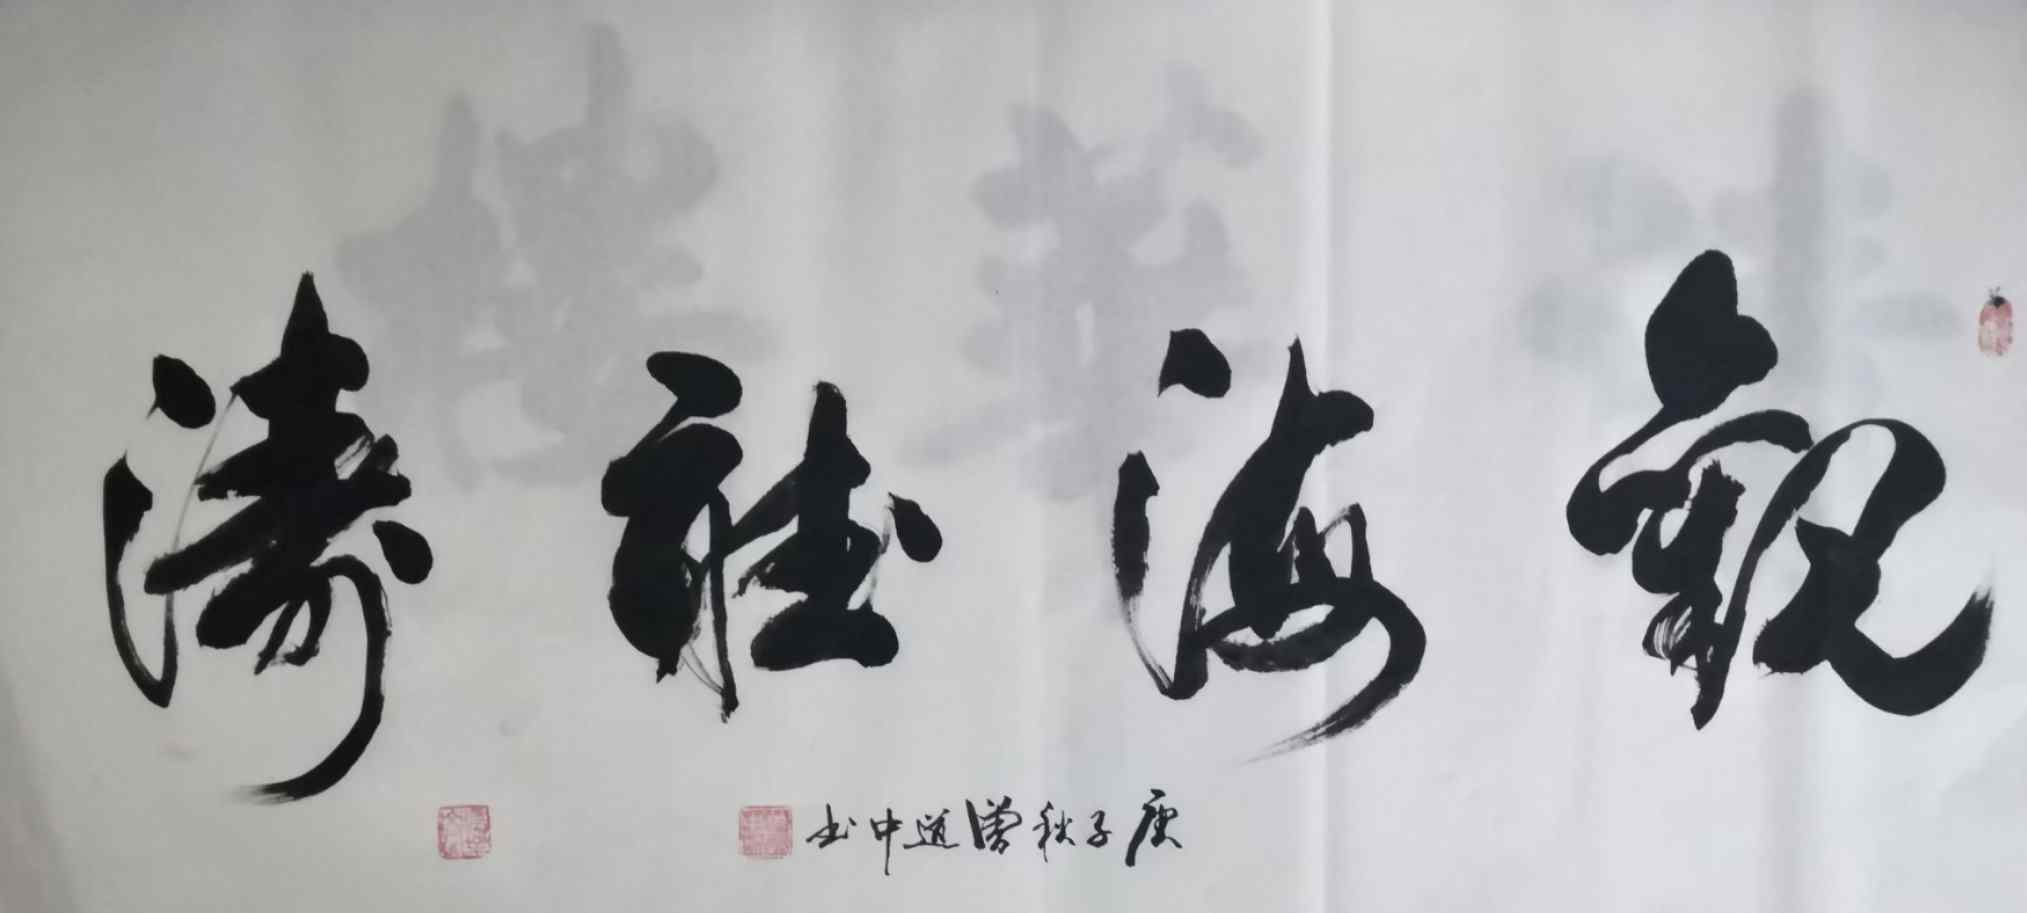 觀海聽濤
庚子秋曾道中书